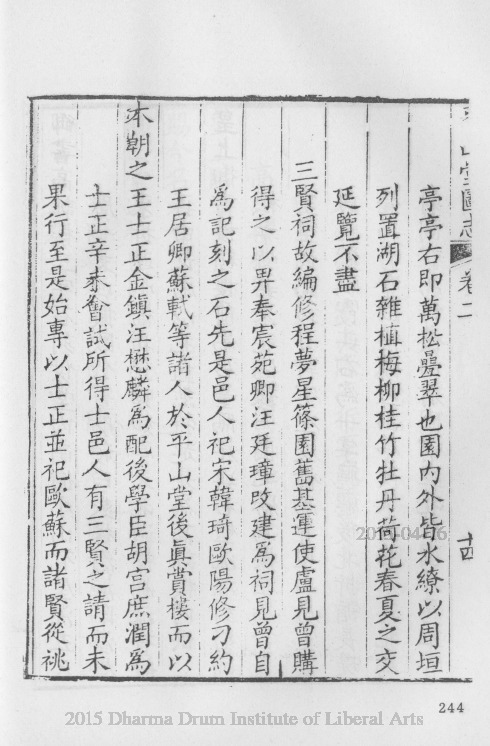 平山堂圖志 卷二 十四
亭亭右即萬松疊翠也園内外皆水繚以周垣
列置湖石雜植梅柳桂竹牡丹荷花春夏之交
延覽不盡
三賢祠故編修程夢星篠園舊基運使盧見曾購
得之以畀奉宸苑卿汪廷璋改建為祠見曾自
為記刻之石先是邑人祀宋韓琦歐陽修刁約
王居卿蘇軾等諸人於平山堂後真賞樓而以
本朝之王士正金鎮汪懋麟為配後學臣胡宫庶潤為
士正辛未會試所得士邑人有三賢之請而未
果行至是始專以士正並祀歐蘇而諸賢從祧
2015-04-16
244
2015 Dharma Drum Institute of Liberal Arts